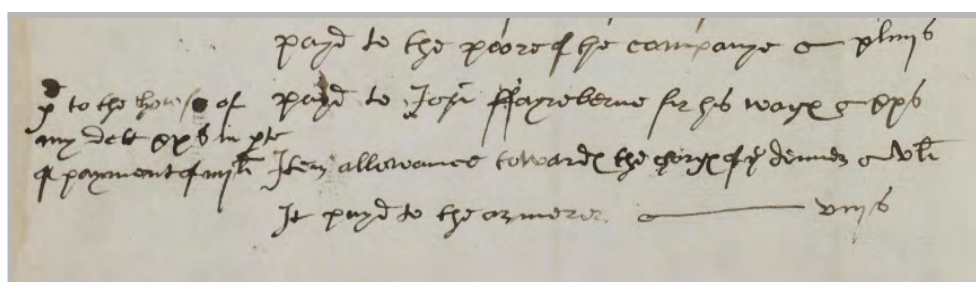 payd to the poore of the companye xlviijs
p to the howse of
my dett xxs in pte
of payment of iiijli
payd to John ffayreberne for his wagx xxs
Item allowance towardx the chargx of ye denner vli
It payd to the armerer viijs